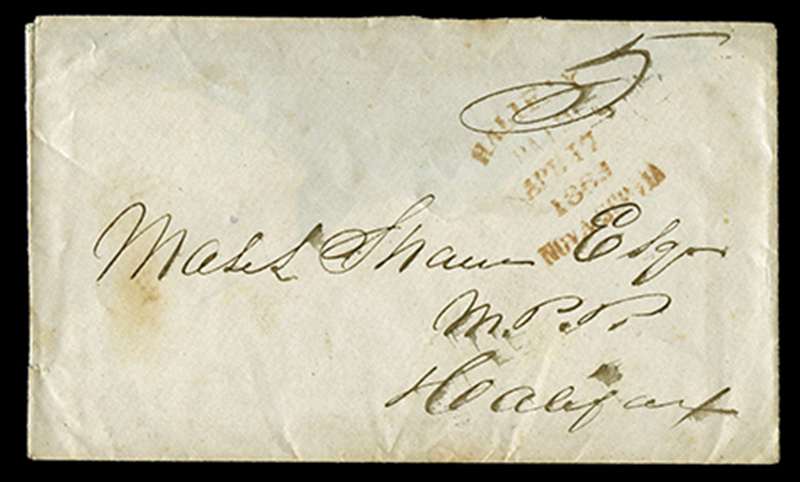 5
HALIFAX
PAID
APR 17
1864
NOVA SCOTIA
Mosel Shaw Esqr
M.P.P.
Halifax